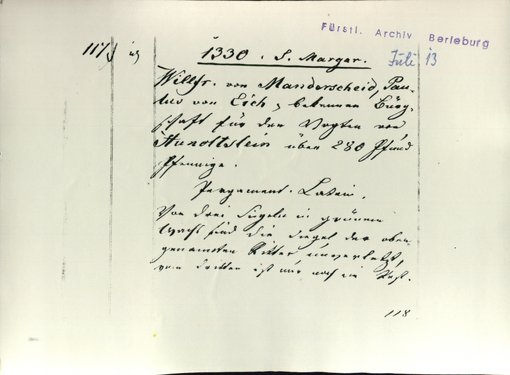 Fürstl. Archiv Berleburg
1330. S. Margar.
Juli 13
Wilh. von Manderscheid, Pau-
lus von Esch, bekennen Bürg-
schaft für den Vogten von
Hunoltstein über 280 Pfund
Pfennige.
Pergament. Latein.
Von drei Siegeln in grünem
Wachs sind die Siegel der oben
genannten Ritter unverletzt,
vom dritten ist nur noch ein Rest.
118